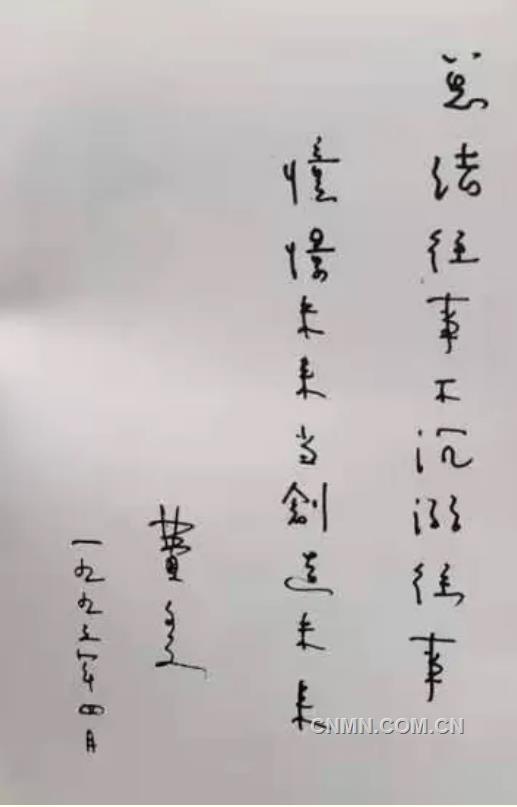 总结往事不沉溺往事
憧憬未来当创造未来
費子文
一九九年四月
CNMN.COM.CN